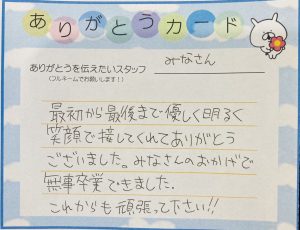 ありがとうカード
ありがとうを伝えたいスタッフ
(フルネームでお願いします！)
みなさん
最初から最後まで優しく明るく
笑顔で接してくれてありがとう
ございました。みなさんのおかげで
無事卒業できました.
これからも頑張って下さい!!